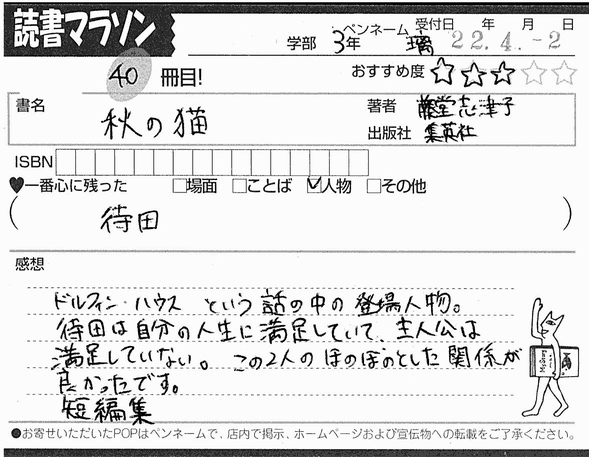 読書マラソン
学部 3年 ペンネーム 璃 受付日 年 月 日
22.4.-2
40 冊目! おすすめ度 ☆☆☆☆☆
書名 秋の猫 著者 藤堂志津子
出版社 集英社
ISBN
♥一番心に残った □場面 □ことば ☑人物 □その他
( 待田 )
感想
ドルフィン・ハウス という話の中の登場人物。
待田は自分の人生に満足していて、主人公は
満足していない。この2人のほのぼのとした関係が
良かったです。
短編集
●お寄せいただいたPOPはペンネームで、店内で掲示、ホームページおよび宣伝物への転載をご了承ください。